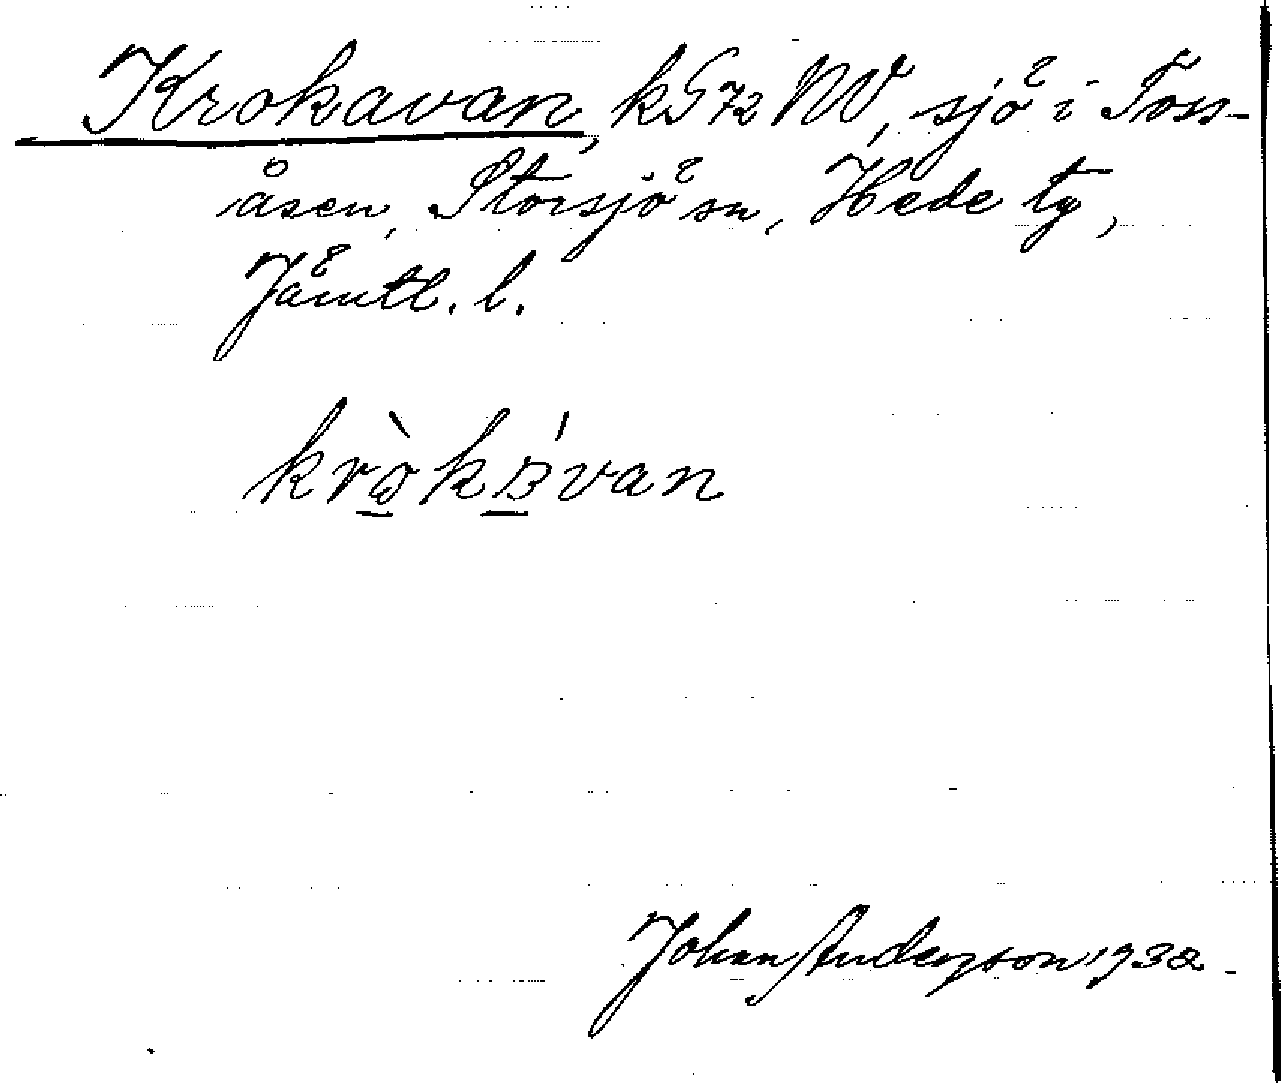 Krokavan, kG72 NV, sjö i Toss-
åsen, Storsjö sn, Hede tg,
Jämtl. l.
Johan Anderson 1932